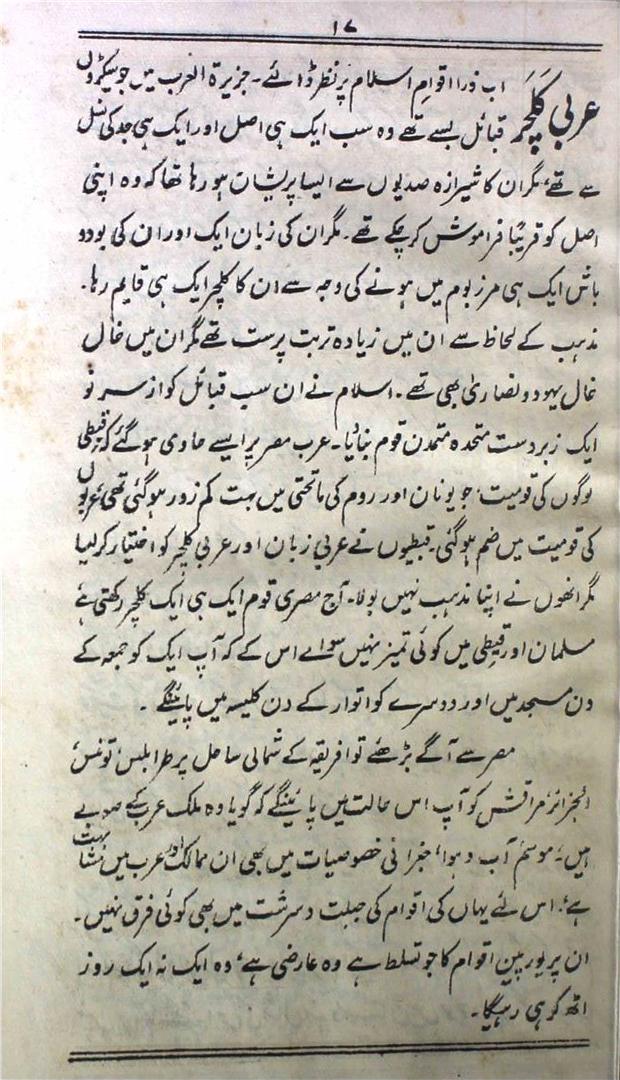 ۱۷
عربی کَلچَر اب ذرا اقوامِ اسلام پر نظر ڈالئے۔ جزیرۃ العرب میں جو سیکڑوں
قبائل بسے تھے وہ سب ایک ہی اصل اور ایک ہی جد کی نسل
سے تھے، مگر ان کا شیرازہ صدیوں سے ایسا پریشان ہو رہا تھا کہ وہ اپنی
اصل کو قریبًا فراموش کر چکے تھے۔ مگر ان کی زبان ایک اور ان کی بود و
باش ایک ہی مرزبوم میں ہونے کی وجہ سے ان کا کلچر ایک ہی قایم رہا۔
مذہب کے لحاظ سے ان میں زیادہ تر بت پرست تھے مگر ان میں خال
خال یہود و نصاریٰ بھی تھے۔ اسلام نے ان سب قبائل کو از سر نو
ایک زبردست متحدہ متمدن قوم بنا دیا۔ عرب مصر پر ایسے حاوی ہو گئے کہ قبطی
لوگوں کی قومیت، جو یونان اور روم کی ماتحتی میں بہت کم زور ہو گئی تھی، عربوں
کی قومیت میں ضم ہو گئی۔ قبطیوں نے عربی زبان اور عربی کلچر کو اختیار کر لیا
مگر انھوں نے اپنا مذہب نہیں بدلا۔ آج مصری قوم ایک ہی ایک کلچر رکھتی ہے
مسلمان اور قبطی میں کوئی تمیز نہیں سوائے اس کے کہ آپ ایک کو جمعہ کے
دن مسجد میں اور دوسرے کو اتوار کے دن کلیسہ میں پائینگے۔
مصر سے آگے بڑھئے تو افریقہ کے شمالی ساحل پر طرابلس، تونس،
الجزائر، مراقش کو آپ اس حالت میں پائینگے کہ گویا وہ ملک عرب کے صوبے
ہیں، موسم، آب و ہوا، جغرافی خصوصیات میں بھی ان ممالک اور عرب میں بہت مشابہت
ہے، اس لئے یہاں کی اقوام کی جبلت و سرشت میں بھی کوئی فرق نہیں۔
ان پر یورپین اقوام کا جو تسلط ہے وہ عارضی ہے، وہ ایک نہ ایک روز
اٹھ کر ہی رہیگا۔